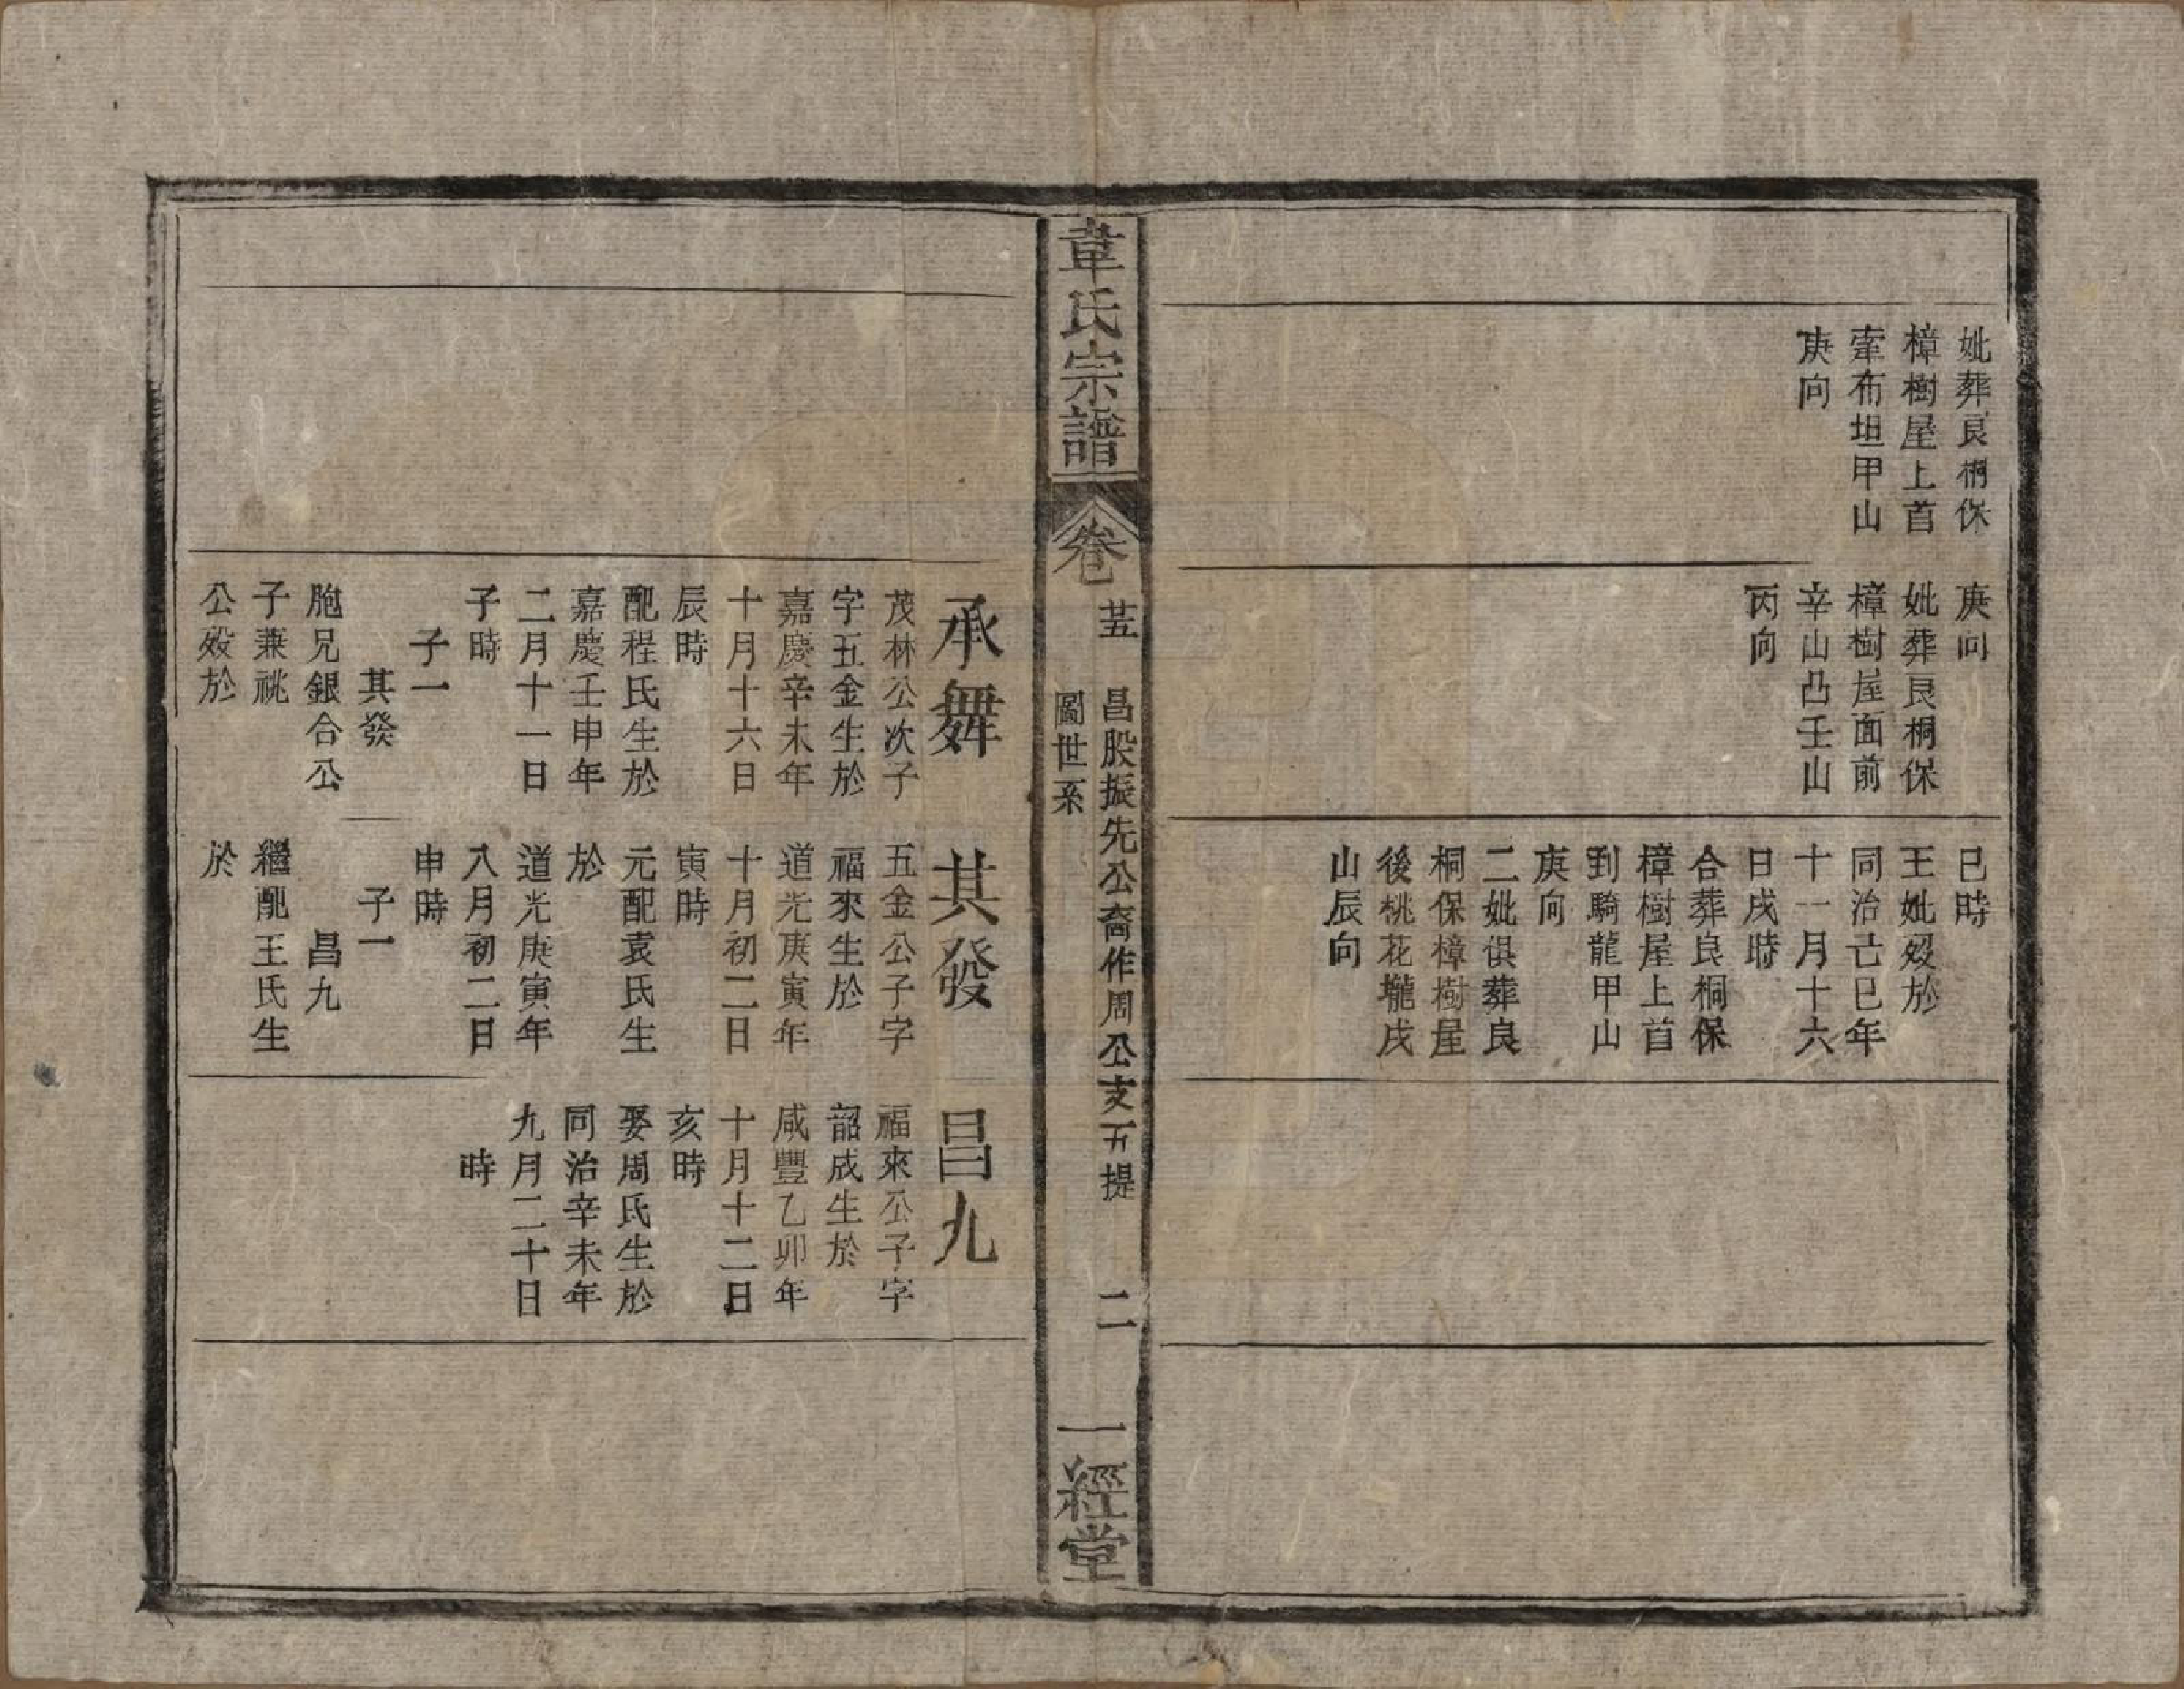 妣葬良桐保
樟樹屋上首
牽布坦甲山
庚向
庚向
妣葬良桐保
樟樹屋面前
辛山凸壬山
丙向
巳時
王妣歿於
同治己巳年
十一月十六
日戌時
合葬良桐保
樟樹屋上首
到騎龍甲山
庚向
二妣俱葬良
桐保樟樹屋
後桃花壠戌
山辰向
韋氏宗譜
卷
芸
昌股振先公裔作周公支五提
圖世系
二
一經堂
承舞
茂林公次子
字五金生於
嘉慶辛未年
十月十六日
辰時
配程氏生於
嘉慶壬申年
二月十一日
子時
子一
其發
胞兄銀合公
子兼祧
公歿於
其發
五金公子字
福來生於
道光庚寅年
十月初二日
寅時
元配袁氏生
於
道光庚寅年
八月初二日
申時
子一
昌九
繼配王氏生
於
昌九
福來公子字
韶成生於
咸豐乙卯年
十月十二日
亥時
娶周氏生於
同治辛未年
九月二十日
時